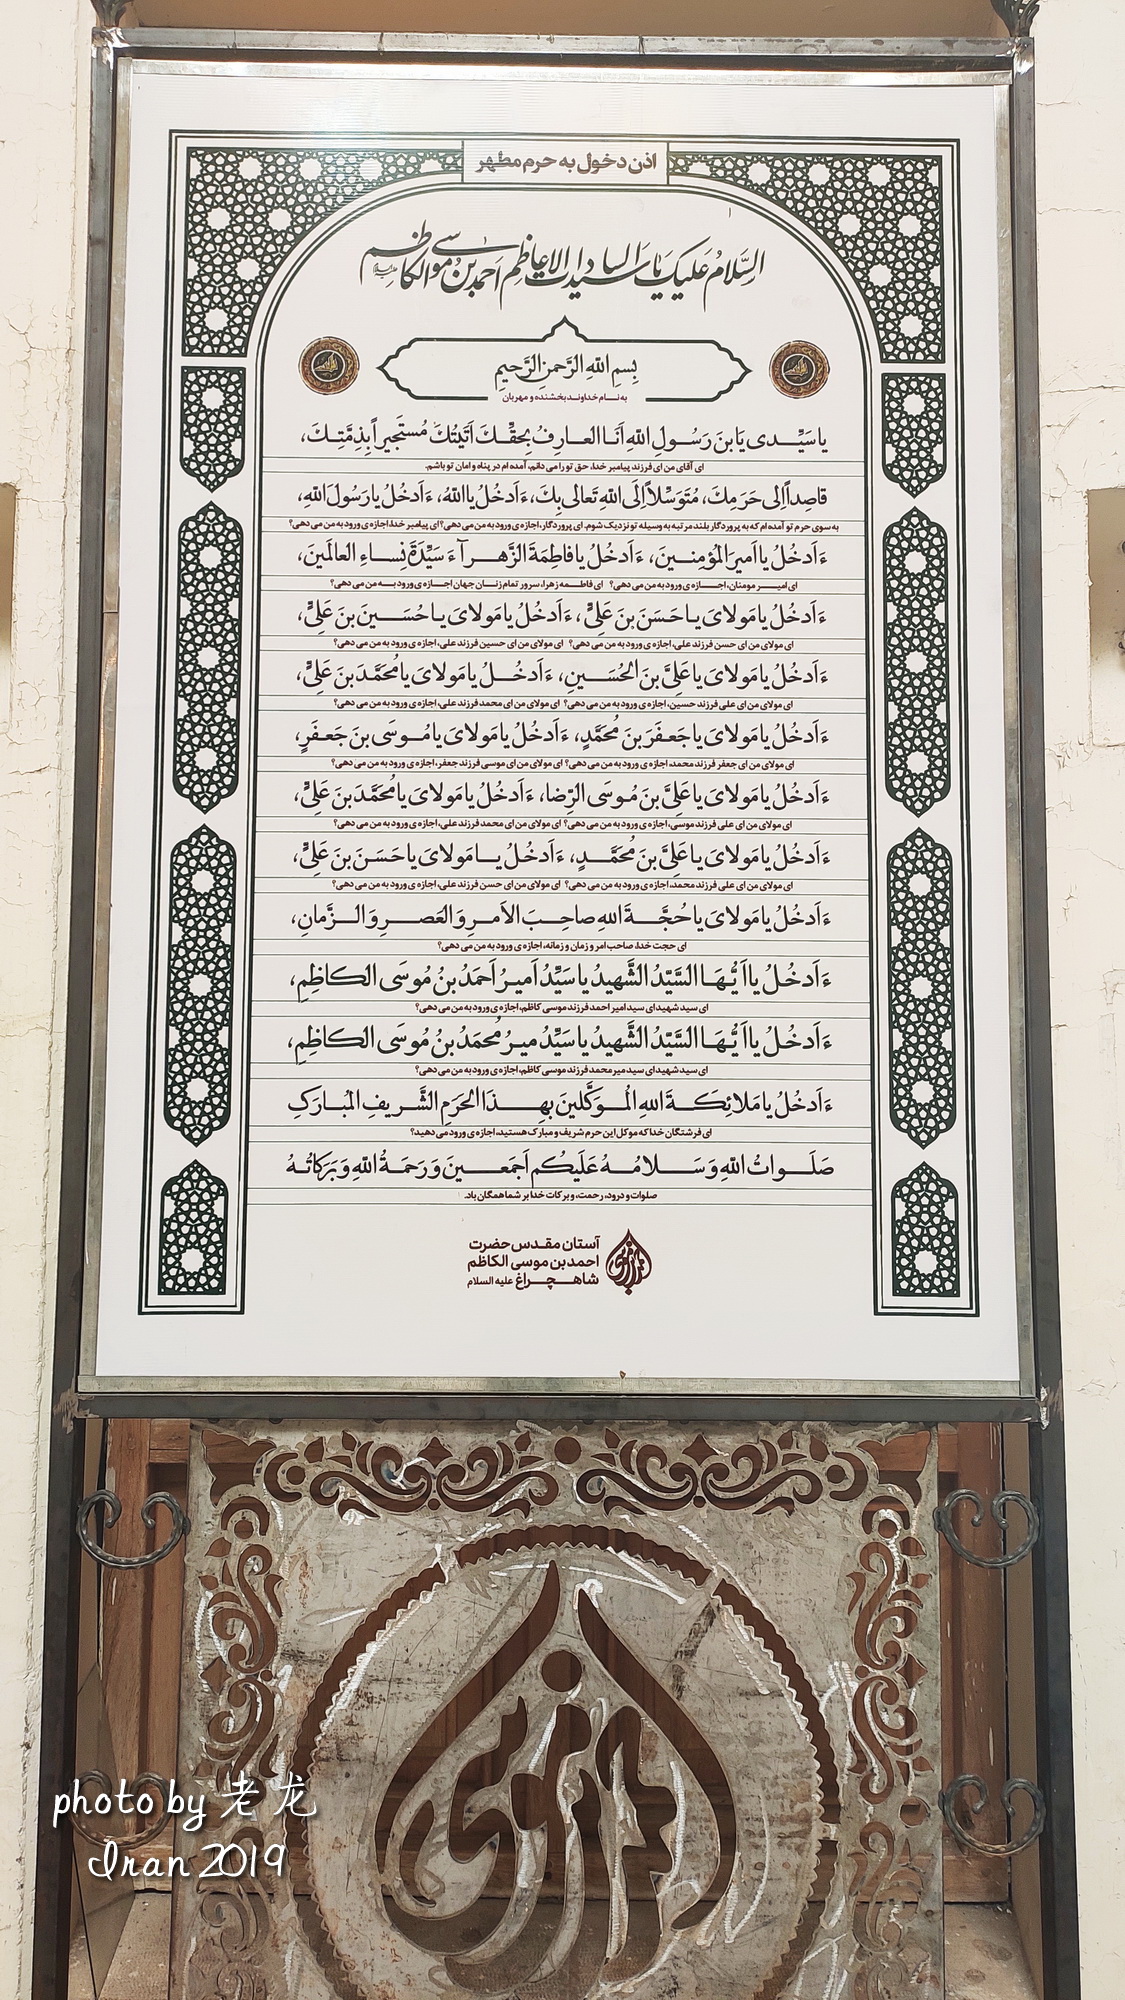 اذن دخول به حرم مطهر
السَّلامُ عَلَیکَ یا سَیِّدَ السّاداتِ الاَعاظِم اَحمَدَ بنَ مُوسَی الکاظِم
بِسمِ اللهِ الرَّحمنِ الرَّحیمِ
به نـام خداونـد بخشنده و مهربان
یا سَیِّـدی یَابنَ رَسُـولِ اللهِ اَنَـا العـارِفُ بِحَقِّـكَ اَتَیتُكَ مُستَجیراً بِذِمَّتِـكَ،
ای آقای من ای فرزند پیامبر خدا، حق تو را می دانم، آمده ام در پناه و امان تو باشم.
قاصِداً اِلی حَرَمِكَ، مُتَوَسِّلاً اِلَی اللهِ تَعالی بِكَ، ءَاَدخُلُ یا اللهُ، ءَاَدخُلُ یا رَسُولَ اللهِ،
به سوی حرم تو آمده ام که به پروردگار بلند مرتبه به وسیله تو نزدیک شوم. ای پروردگار، اجازه ی ورود به من می دهی؟ ای پیامبر خدا، اجازه ی ورود به من می دهی؟
ءَاَدخُلُ یا اَمیرَ المُؤمِنـینَ، ءَاَدخُلُ یا فاطِمَةَ الزَّهـرآءَ سَیِّدَةَ نِساءِ العالَمینَ،
ای امیـر مومنان، اجـازه ی ورود به من می دهی؟ ای فاطـمه زهرا، سرور تمام زنـان جهان اجـازه ی ورود بـه من می دهی؟
ءَاَدخُلُ یا مَولایَ یـا حَسَنَ بنَ عَلِیٍّ، ءَاَدخُلُ یا مَولایَ یـا حُسَـینَ بنَ عَلِیٍّ،
ای مولای من ای حسن فرزند علی، اجازه ی ورود به من می دهی؟ ای مولای من ای حسین فرزند علی، اجازه ی ورود به من می دهی؟
ءَاَدخُلُ یا مَولایَ یا عَلِیَّ بنَ الحُسَـینِ، ءَاَدخُـلُ یا مَولایَ یا مُحَمَّدَ بنَ عَلِیٍّ،
ای مولای من ای علی فرزند حسین، اجازه ی ورود به من می دهی؟ ای مولای من ای محمد فرزند علی، اجازه ی ورود به من می دهی؟
ءَاَدخُلُ یا مَولایَ یا جَعـفَرَ بنَ مُحَمَّدٍ، ءَاَدخُلُ یا مَولایَ یا مُـوسَی بنَ جَعـفَرٍ،
ای مولای من ای جعفر فرزند محمد، اجازه ی ورود به من می دهی؟ ای مولای من ای موسی فرزند جعفر، اجازه ی ورود به من می دهی؟
ءَاَدخُلُ یا مَولایَ یا عَلِیَّ بنَ مُـوسَی الرِّضا، ءَاَدخُلُ یا مَولایَ یا مُحَمَّدَ بنَ عَلِیٍّ،
ای مولای من ای علی فرزند موسی، اجازه ی ورود به من می دهی؟ ای مولای من ای محمد فرزند علی، اجازه ی ورود به من می دهی؟
ءَاَدخُلُ یا مَولایَ یا عَلِیَّ بنَ مُحَمَّـدٍ، ءَاَدخُلُ یـا مَـولایَ یا حَسَـنَ بنَ عَلِیٍّ،
ای مولای من ای علی فرزند محمد، اجازه ی ورود به من می دهی؟ ای مولای من ای حسن فرزند علی، اجازه ی ورود به من می دهی؟
ءَاَدخُلُ یا مَولایَ یا حُجَّـةَ اللهِ صاحِـبَ الاَمـرِ وَ العَصـرِ وَ الـزَّمانِ،
ای حجت خدا، صاحب امر و زمان و زمانه، اجازه ی ورود به من می دهی؟
ءَاَدخُلُ یا اَیُّـهَـا السَّیِّدُ الشَّهیدُ یا سَیِّدُ اَمیـرُ اَحمَدُ بنُ مُوسَی الـکاظِمِ،
ای سید شهید ای سید امیر احمد فرزند موسی کاظم، اجازه ی ورود به من می دهی؟
ءَاَدخُلُ یا اَیُّـهَـا السَّیِّدُ الشَّهیدُ یا سَیِّدُ میـرُ مُحمَدُ بنُ مُوسَی الـکاظِمِ،
ای سید شهید ای سید میر محمد فرزند موسی کاظم، اجازه ی ورود به من می دهی؟
ءَاَدخُلُ یا مَلائِکَـةَ اللهِ المُـوَکَّلینَ بِهـذَا الحَرَمِ الشَّـریفِ المُبـارَکِ
ای فرشتگان خدا که موکل این حرم شریف و مبارک هستید، اجازه ی ورود می دهید؟
صَلَـواتُ اللهِ وَ سَـلامُـهُ عَلَیکُم اَجمَعـینَ وَ رَحمَـةُ اللهِ وَ بَرَکاتُـهُ
صلوات و درود، رحمت، و برکات خدا بر شما همگان باد.
آستان مقدس حضرت
احمد بن موسی الکاظم
شاهـچـراغ علیه السلام
photo by 老龙
Iran 2019